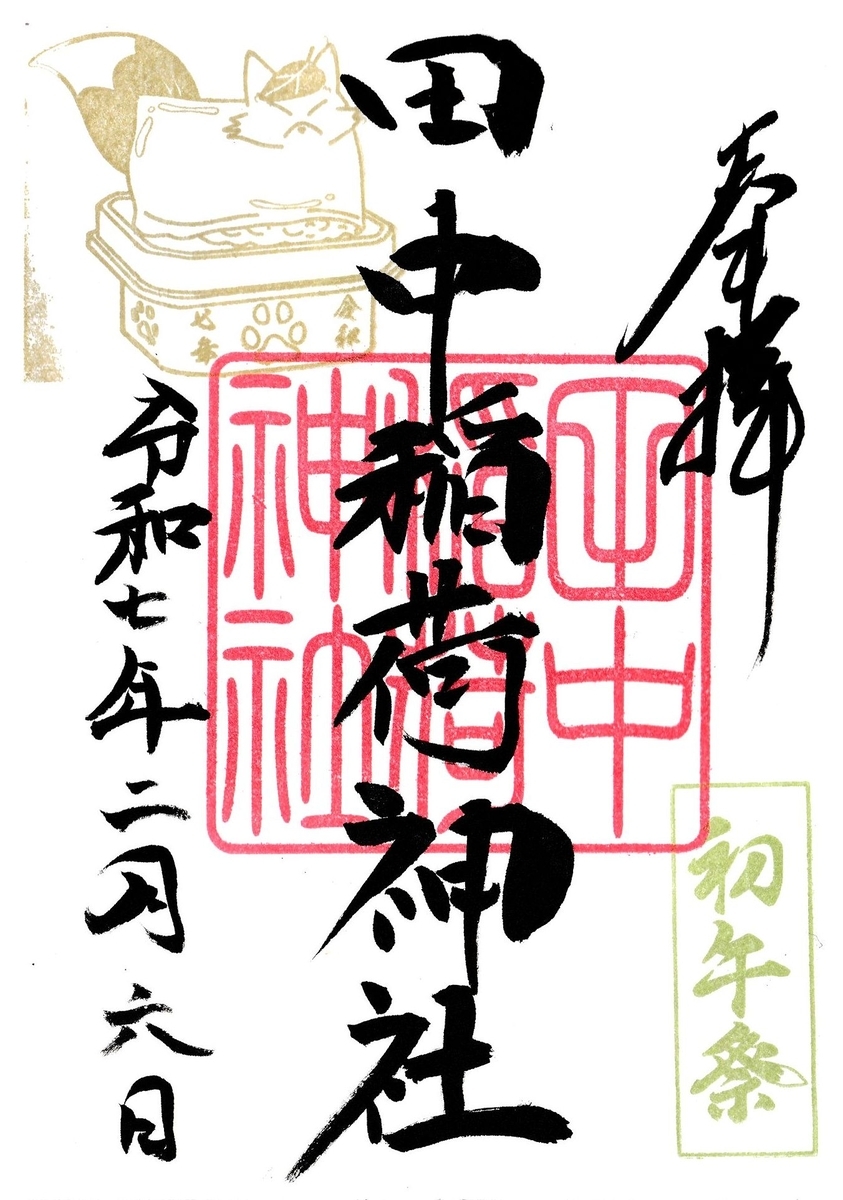 奉拝
初午祭
田中稲荷神社
田中
稲荷
神社
令和
七年
令和七年二月六日